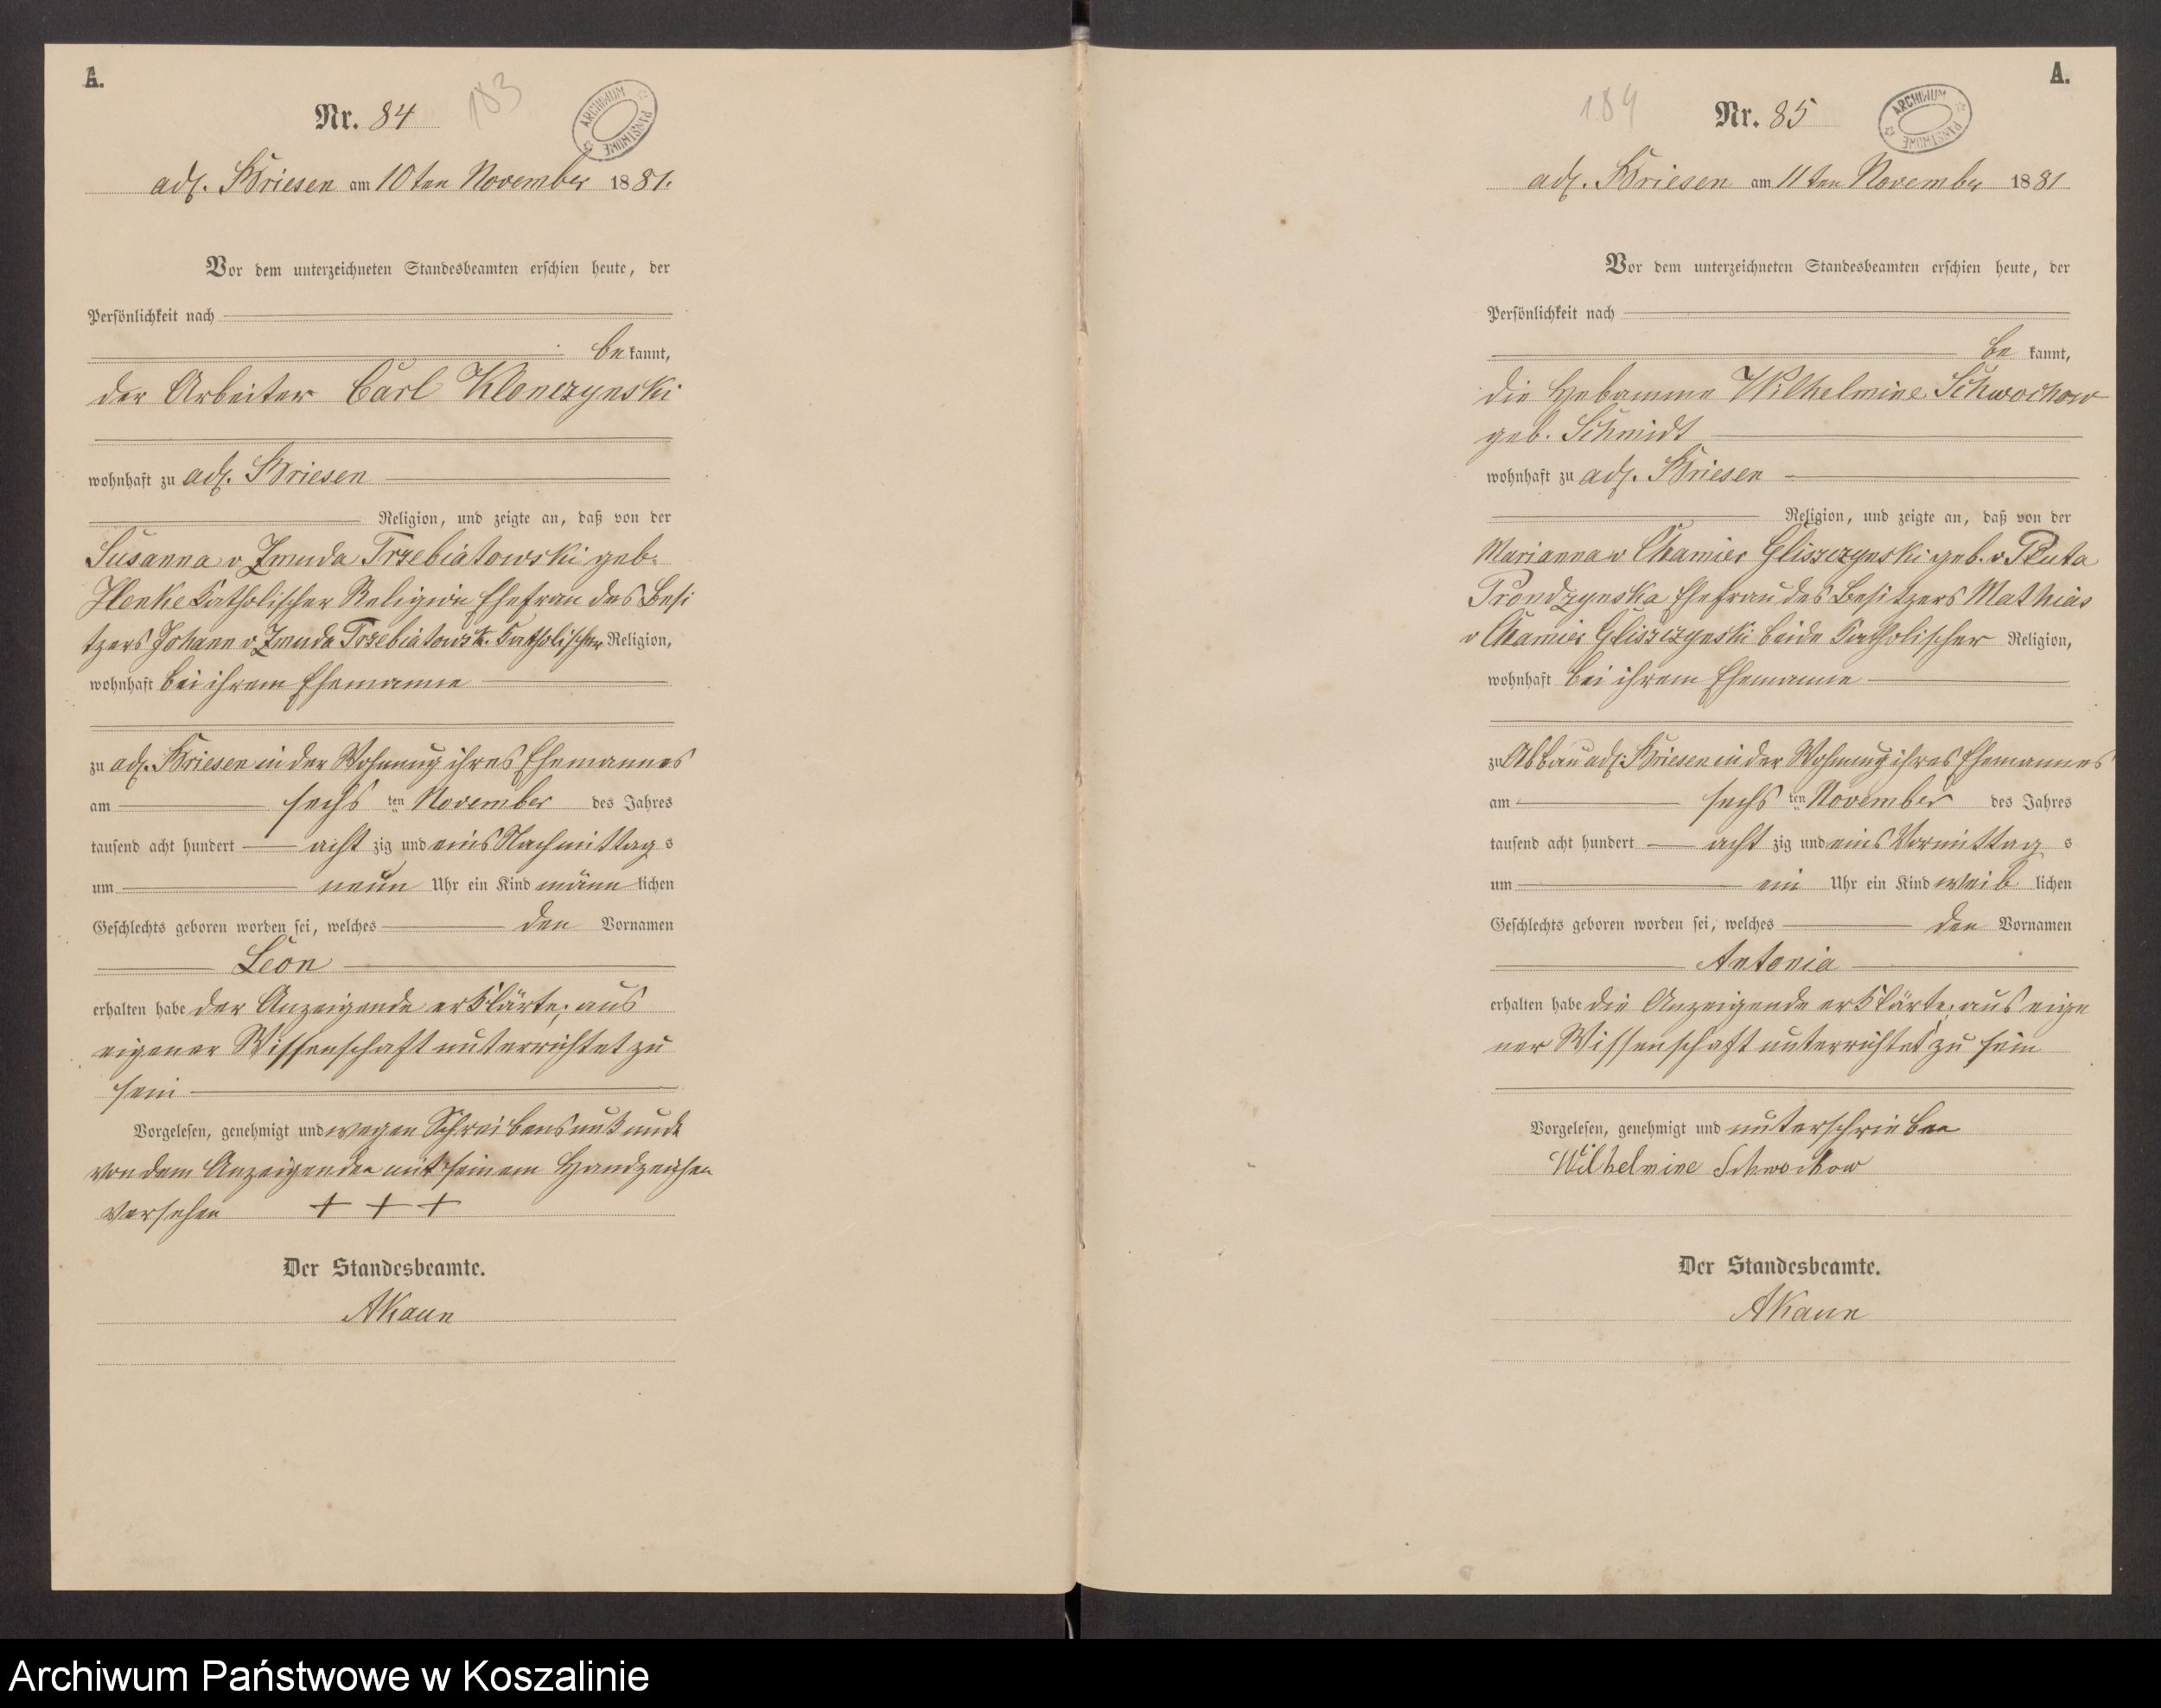 A.
Nr. 84
183
ARCHIWUM PAŃSTWOWE
adl. Briesen am 10ten November 1881.
Vor dem unterzeichneten Standesbeamten erschien heute, der
Persönlichkeit nach
bekannt,
der Arbeiter Carl Klonczynski
wohnhaft zu adl. Briesen
Religion, und zeigte an, daß von der
Susanna v Zmuda Trzebiatowski geb.
Henke katholischer Religion Ehefrau des Besi
tzers Johann v Zmuda Trzebiatowsk. katholischer Religion,
wohnhaft bei ihrem Ehemanne
zu adl. Briesen in der Wohnung ihres Ehemannes
am sechs ten November des Jahres
tausend acht hundert acht zig und eins Nachmittag s
um neun Uhr ein Kind männ lichen
Geschlechts geboren worden sei, welches den Vornamen
Leon
erhalten habe der Anzeigende erklärte, aus
eigener Wissenschaft unterrichtet zu
sein
Vorgelesen, genehmigt und wegen Schreibensunkunde
von dem Anzeigenden mit seinem Handzeichen
versehen + + +
Der Standesbeamte.
AKaun
A.
184
Nr. 85
ARCHIWUM PAŃSTWOWE
adl. Briesen am 11ten November 1881
Vor dem unterzeichneten Standesbeamten erschien heute, der
Persönlichkeit nach
be kannt,
die Hebamme Wilhelmine Schwochow
geb. Schmidt
wohnhaft zu adl. Briesen
Religion, und zeigte an, daß von der
Marianna v Chamier Gliszczynski geb. v Pluta
Prondzynska Ehefrau des Besitzers Mathias
v Chamier Gliszczynski beide katholischer Religion,
wohnhaft bei ihrem Ehemanne
zu Abbau adl. Briesen in der Wohnung ihres Ehemannes
am sechs ten November des Jahres
tausend acht hundert acht zig und eins Vormittag s
um ein Uhr ein Kind weib lichen
Geschlechts geboren worden sei, welches den Vornamen
Antonia
erhalten habe die Anzeigende erklärte, aus eige
ner Wissenschaft unterrichtet zu sein
Vorgelesen, genehmigt und unterschrieben
Wilhelmine Schwochow
Der Standesbeamte.
AKaun
Archiwum Państwowe w Koszalinie